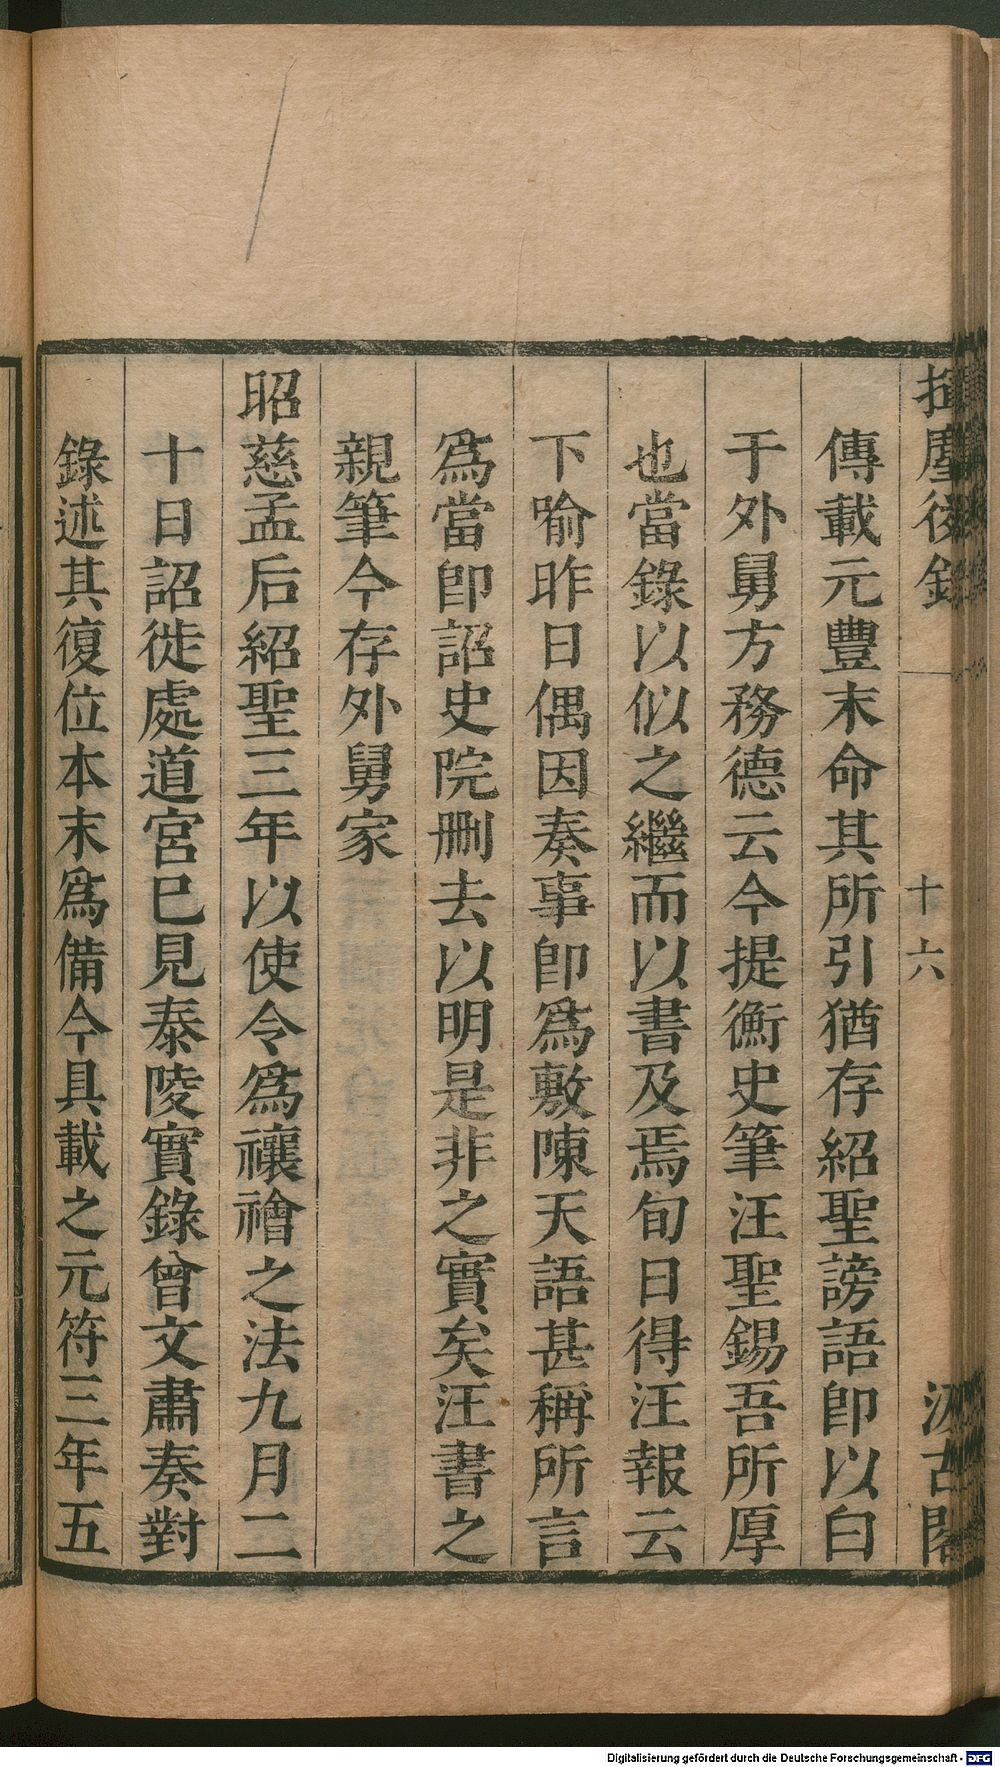 揮塵後錄 十六 汲古閣
傳載元豐末命其所引猶存紹聖謗語卽以白
于外舅方務德云今提衡史筆汪聖錫吾所厚
也當錄以似之繼而以書及焉旬日得汪報云
下喻昨日偶因奏事卽爲敷陳天語甚稱所言
爲當卽詔史院刪去以明是非之實矣汪書之
親筆今存外舅家
昭慈孟后紹聖三年以使令爲禳禬之法九月二
十日詔徙處道宮巳見泰陵實錄曾文肅奏對
錄述其復位本末爲備今具載之元符三年五
Digitalisierung gefördert durch die Deutsche Forschungsgemeinschaft - DFG